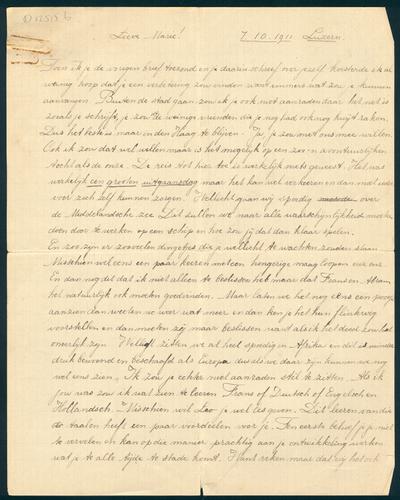 Lieve Marie!
7.10.1911 Luzern.
Toen ik je de vorigen brief toezond en je daarin schreef over jezelf, koesterde ik al
weinig hoop dat je een verbetering zou vinden want immers wat zou je kunnen
aanvangen. Buiten de stad gaan zou ik je ook niet aanraden daar het net is
zoals je schrijft, je zou de weinige vrienden die je nog had ook nog kwijt raken.
Dus het beste is maar in den Haag te blijven. Ja je zou met ons mee willen.
Ook ik zou dat wel willen maar is het mogelijk op een zoo'n avontuurlijken
tocht als de onze. De reis tot hier toe is werkelijk niets geweest. Het was
werkelijk een grooten uitgaansdag maar het kan wel verkeeren en dan moet ieder
voor zich zelf kunnen zorgen. Wellicht gaan wij spoedig over
de Middelandsche zee. Dat zullen we naar alle waarschijnlijkheid moeten
doen door te werken op een schip en hoe zou jij dat dan klaar spelen.
En zoo zijn er zoovelen dingetjes die je wellicht te wachten zouden staan
Misschien wel eens een paar keeren met een hongerige maag loopen enz enz.
En dan nog dit dat ik niet alleen te beslissen heb maar dat Frans en Abram
het natuurlijk ook moeten goedvinden. Maar laten we het nog eens een poosje
aanzien dan weten we weer wat meer en dan kan je het hun flinkweg
voorstellen en dan moeten zij maar beslissen want als ik het deed zou dat
oneerlijk zijn. Wellicht zitten we al heel spoedig in Afrika en dit is minder
druk bewoond en beschaafd als Europa dus als we daar zijn kunnen we nog
wel eens zien. Ik zou je echter wel aanraden stil te zitten. Als ik
jou was zou ik wat zien te leeren Frans of Duitsch of Engelsch en
Hollandsch. Misschien wil Leo je wel les geven. Dit leeren van die
de taalen heeft een paar voordeelen voor je. Ten eerste behoef je je niet
te vervelen en kan op die manier prachtig aan je ontwikkeling werken
wat je te alle tijde te stade komt. Want reken maar dat wij het ook